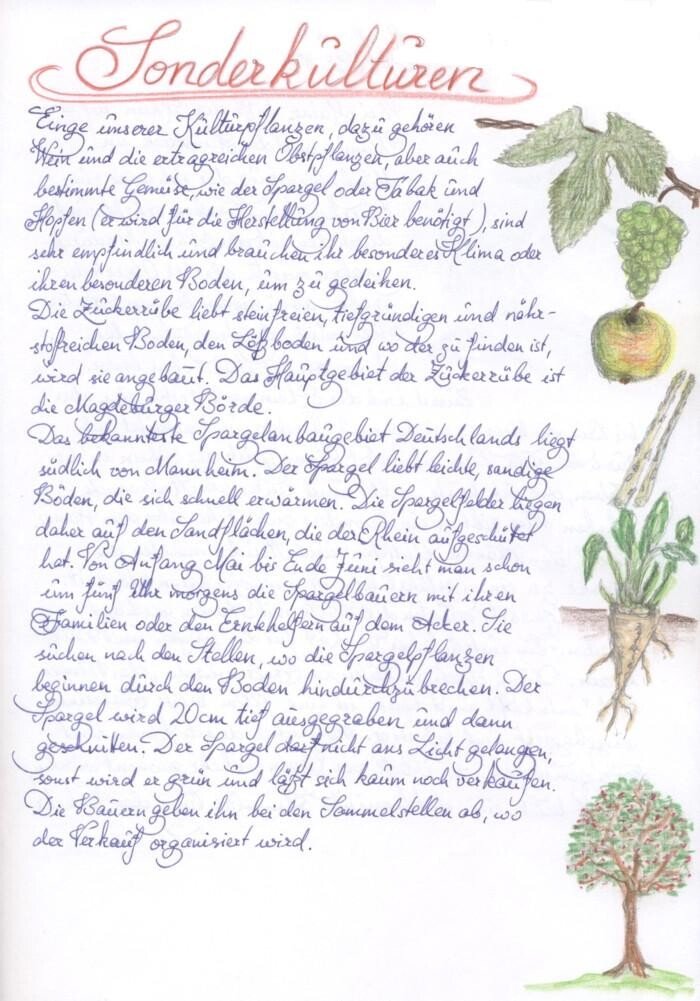 Sonderkulturen
Einge unserer Kulturpflanzen, dazu gehören
Wein und die ertragreichen Obstpflanzen, aber auch
bestimmte Gemüse, wie der Spargel oder Tabak und
Hopfen (er wird für die Herstellung von Bier benötigt), sind
sehr empfindlich und brauchen ihr besonderes Klima oder
ihren besonderen Boden, um zu gedeihen.
Die Zuckerrübe liebt steinfreien, tiefgründigen und nähr-
stoffreichen Boden, den Lößboden und wo der zu finden ist,
wird sie angebaut. Das Hauptgebiet der Zuckerrübe ist
die Magdeburger Börde.
Das bekannteste Spargelanbaugebiet Deutschlands liegt
südlich von Mannheim. Der Spargel liebt leichte, sandige
Böden, die sich schnell erwärmen. Die Spargelfelder liegen
daher auf den Sandflächen, die der Rhein aufgeschüttet
hat. Von Anfang Mai bis Ende Juni sieht man schon
um fünf Uhr morgens die Spargelbauern mit ihren
Familien oder den Erntehelfern auf dem Acker. Sie
suchen nach den Stellen, wo die Spargelpflanzen
beginnen durch den Boden hindurchzubrechen. Der
Spargel wird 20cm tief ausgegraben und dann
geschnitten. Der Spargel darf nicht ans Licht gelangen,
sonst wird er grün und läßt sich kaum noch verkaufen.
Die Bauern geben ihn bei den Sammelstellen ab, wo
der Verkauf organisiert wird.